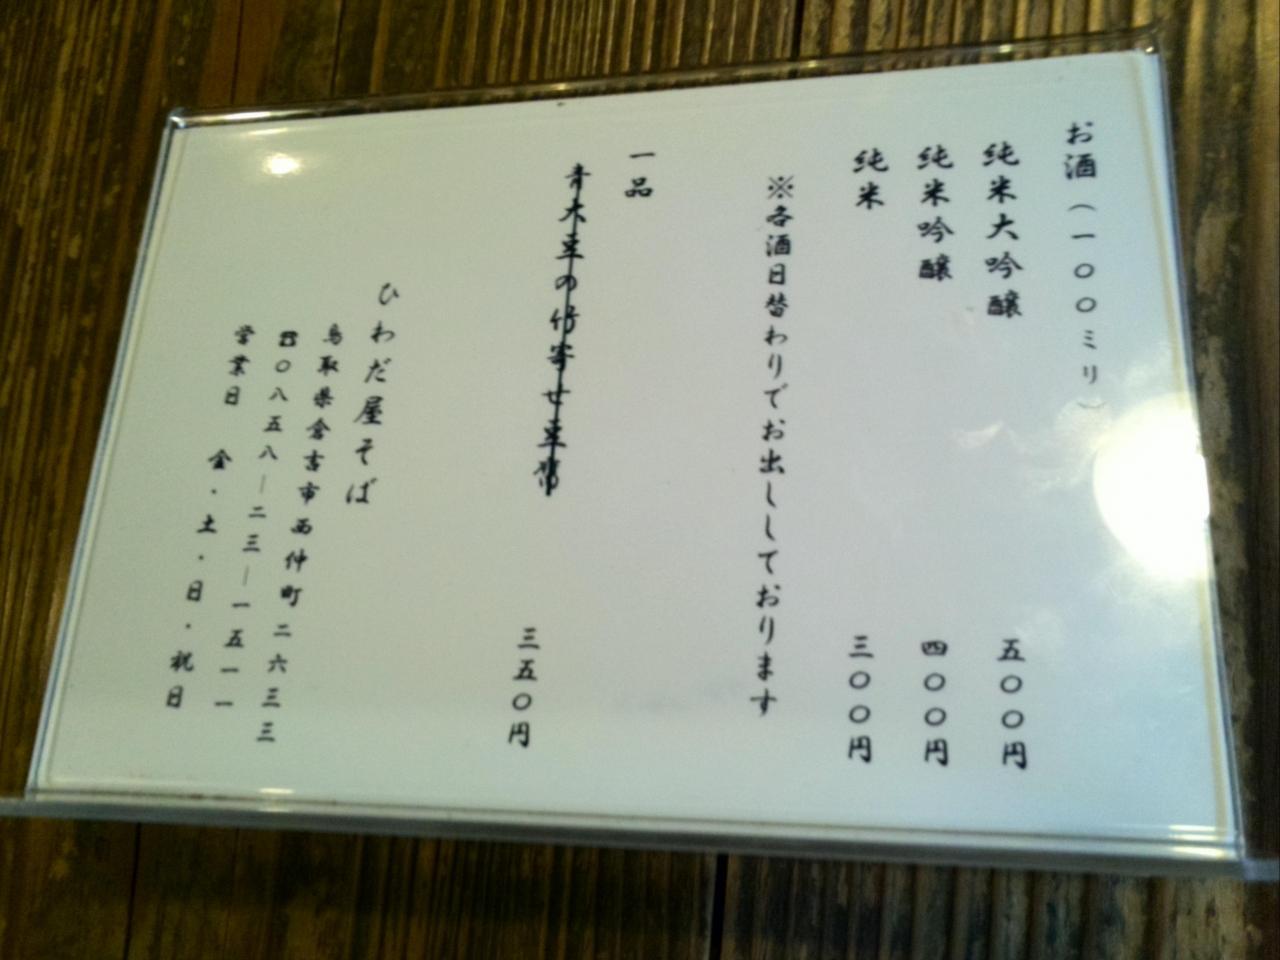 お酒（一〇〇ミリ）
純米大吟醸 五〇〇円
純米吟醸 四〇〇円
純米 三〇〇円
※各酒日替わりでお出ししております
一品
青大豆の竹寄せ豆腐 三五〇円
ひわだ屋そば
鳥取県倉吉市西仲町二六三三
☎〇八五八―二三―一五一一
営業日 金・土・日・祝日